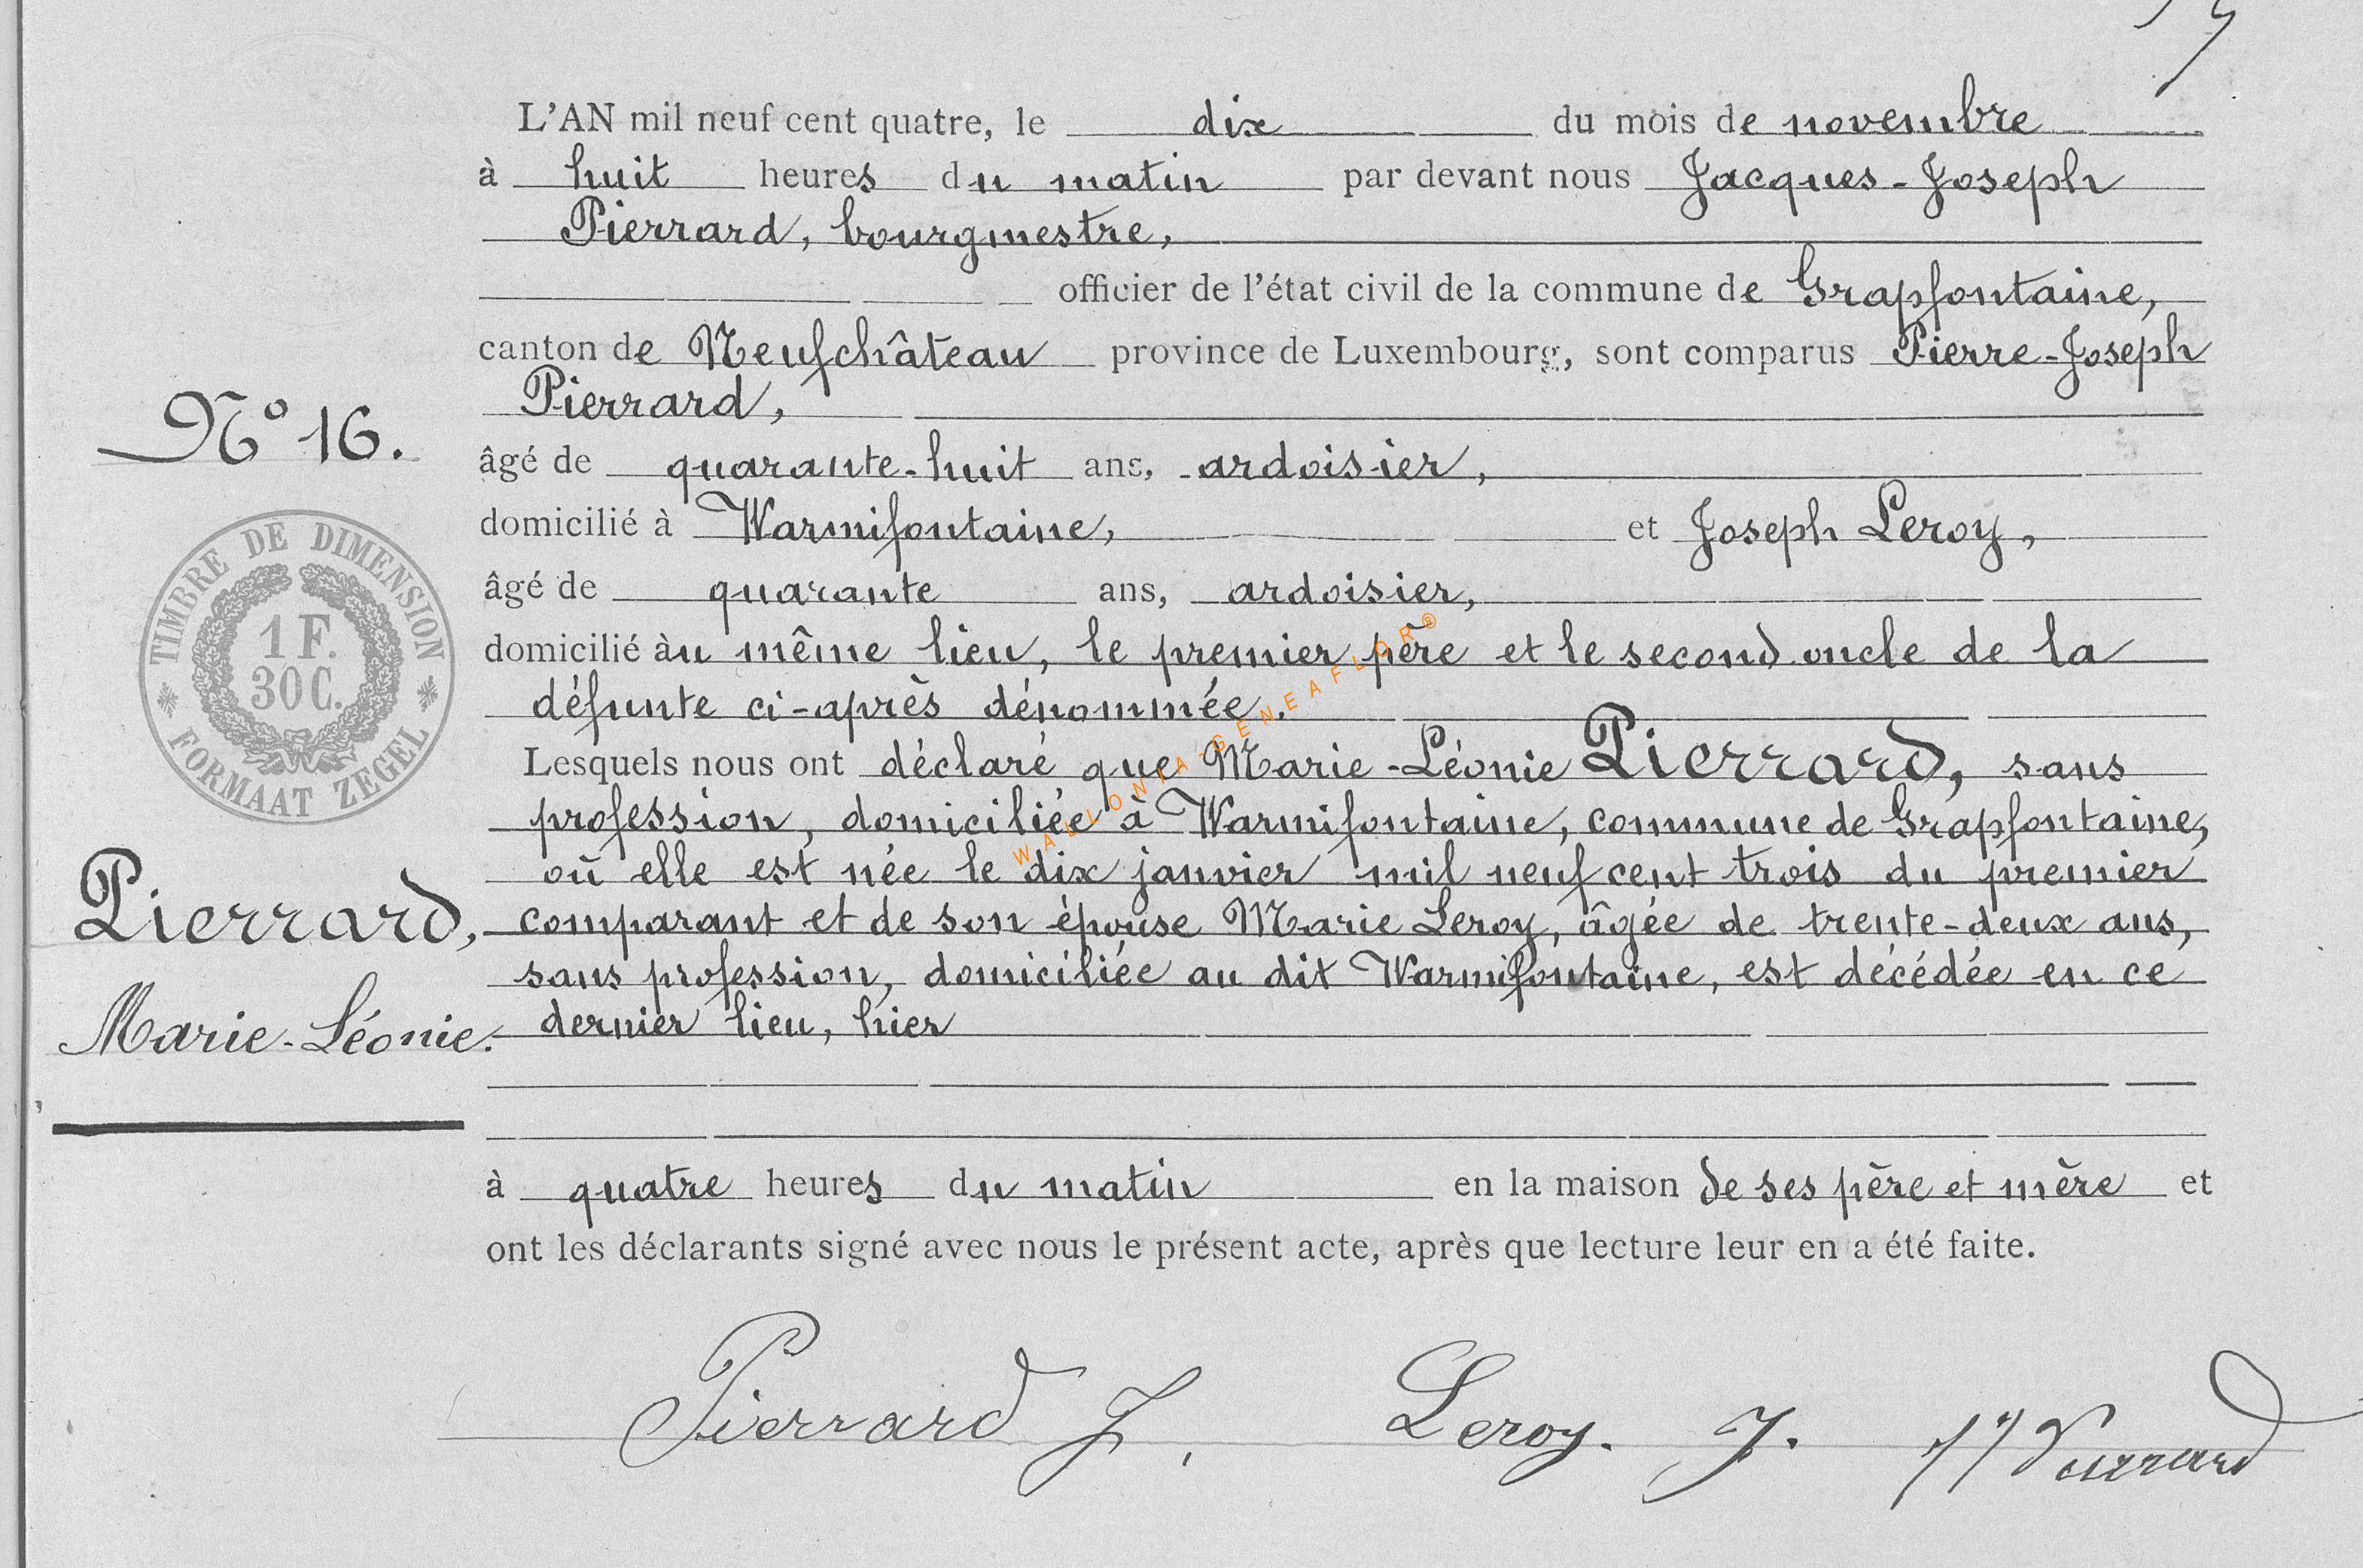 L'AN mil neuf cent quatre, le dix du mois de novembre
à huit heures du matin par devant nous Jacques-Joseph
Pierrard, bourgmestre,
officier de l'état civil de la commune de Grapfontaine,
canton de Neufchâteau province de Luxembourg, sont comparus Pierre-Joseph
Pierrard,
N° 16.
âgé de quarante-huit ans, ardoisier,
domicilié à Warmifontaine, et Joseph Leroy,
âgé de quarante ans, ardoisier,
domicilié àu même lieu, le premier père et le second oncle de la
défunte ci-après dénommée.
TIMBRE DE DIMENSION
1 F.
30 C.
FORMAAT ZEGEL
Lesquels nous ont déclaré que Marie-Léonie Pierrard, sans
profession, domiciliée à Warmifontaine, commune de Grapfontaine,
où elle est née le dix janvier mil neuf cent trois du premier
Pierrard,
comparant et de son épouse Marie Leroy, âgée de trente-deux ans,
sans profession, domiciliée au dit Warmifontaine, est décédée en ce
Marie-Léonie.
dernier lieu, hier
à quatre heures du matin en la maison de ses père et mère et
ont les déclarants signé avec nous le présent acte, après que lecture leur en a été faite.
Pierrard J. Leroy. J. JJ Pierrard
WALLONIA-GENEAFLOR®